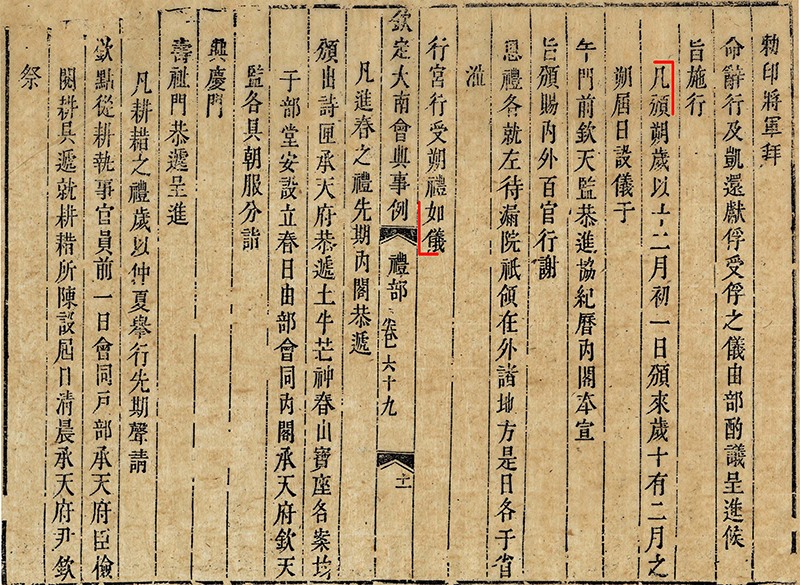 勅印將軍拜
命辭行及凱還獻俘受俘之儀由部酌議呈進候
旨施行
凡頒朔歲以十二月初一日頒來歲十有二月之
朔屆日設儀于
午門前欽天監恭進協紀曆内閣奉宣
旨頒賜内外百官行謝
恩禮各就左待漏院祇領在外諸地方是日各于省
涖
行宮行受朔禮如儀
欽定大南會典事例 禮部 卷六十九 十一
凡進春之禮先期内閣恭遞
頒出詩匣承天府恭遞土牛芒神春山寶座各案均
于部堂安設立春日由部會同内閣承天府欽天
監各具朝服分詣
興慶門
壽祉門恭遞呈進
凡耕耤之禮歲以仲夏舉行先期聲請
欽點從耕執事官員前一日會同戸部承天府臣儉
閱耕具遞就耕耤所陳設屆日清晨承天府尹欽
祭